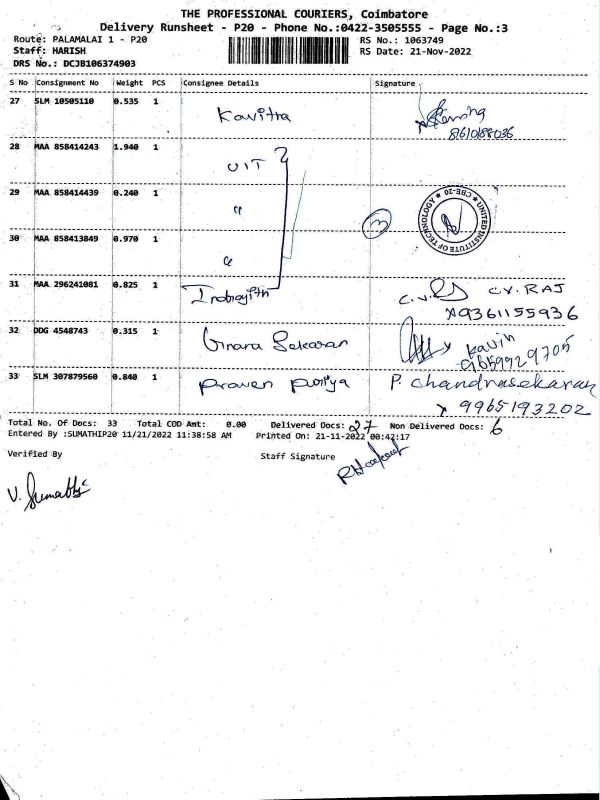 THE PROFESSIONAL COURIERS, Coimbatore
Delivery Runsheet - P20 - Phone No.:0422-3505555 - Page No.:3
Route: PALAMALAI 1 - P20 RS No.: 1063749
Staff: HARISH RS Date: 21-Nov-2022
DRS No.: DCJB106374903
S No Consignment No Weight PCS Consignee Details Signature
27 SLM 10505110 0.535 1 Kavitra
8610188036
28 MAA 858414243 1.940 1 UIT
29 MAA 858414439 0.240 1 "
3
UNITED INSTITUTE OF TECHNOLOGY ★ CBE-20 ★
30 MAA 858413849 0.970 1 "
31 MAA 296241081 0.825 1 C.V. RAJ
9361155936
32 DDG 4548743 0.315 1 Gnana Sekaran Kavin
9659929705
33 SLM 307879560 0.840 1 Praven Poriya P. Chandrasekaran
9965193202
Total No. Of Docs: 33 Total COD Amt: 0.00 Delivered Docs: 27 Non Delivered Docs: 6
Entered By :SUMATHIP20 11/21/2022 11:38:58 AM Printed On: 21-11-2022 00:42:17
Verified By Staff Signature
V. Sumathi